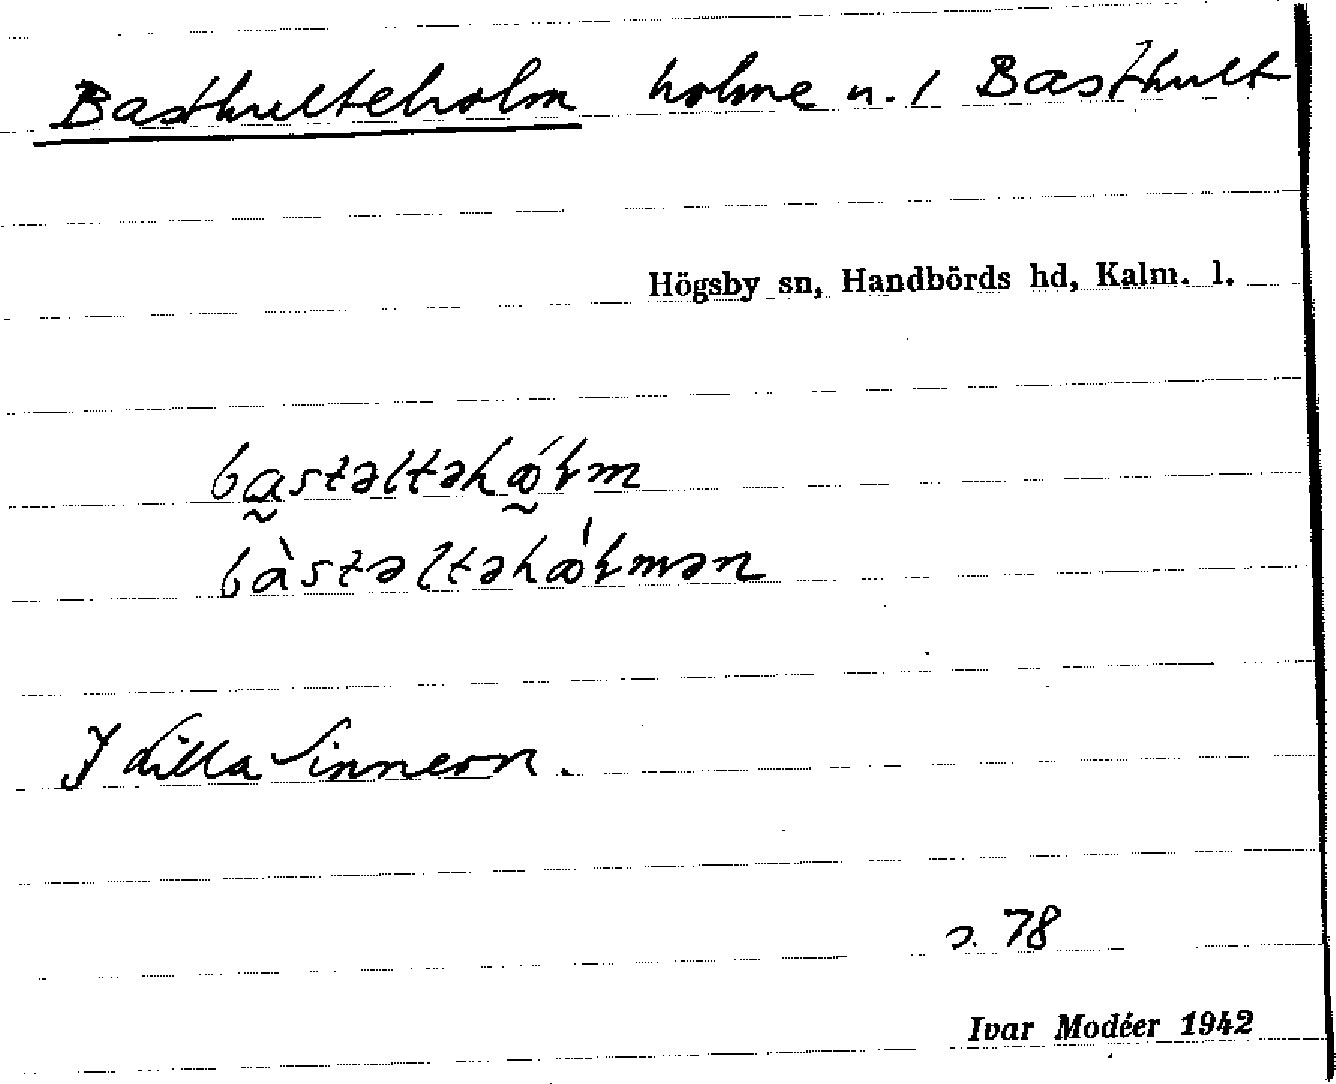 Basthulteholm holme n. 1 Basthult
Högsby sn, Handbörds hd, Kalm. l.
bastəltəhɷ́ɫm
bàstəltəhɷ́ɫmən
I Lilla Sinnern.
s. 78
Ivar Modéer 1942